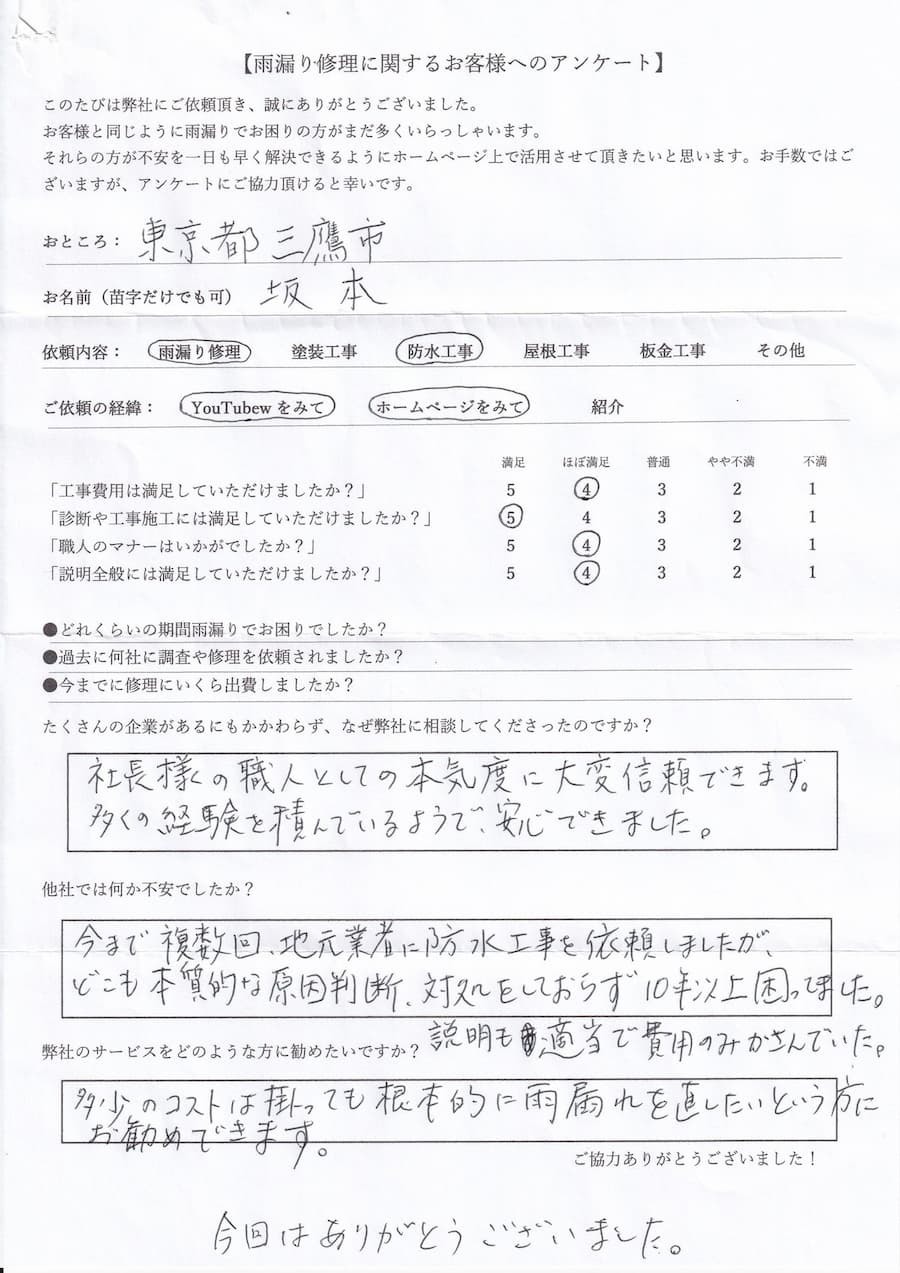 【雨漏り修理に関するお客様へのアンケート】
このたびは弊社にご依頼頂き、誠にありがとうございました。
お客様と同じように雨漏りでお困りの方がまだ多くいらっしゃいます。
それらの方が不安を一日も早く解決できるようにホームページ上で活用させて頂きたいと思います。お手数ではご
ざいますが、アンケートにご協力頂けると幸いです。
おところ： 東京都三鷹市
お名前（苗字だけでも可） 坂本
依頼内容： 雨漏り修理 塗装工事 防水工事 屋根工事 板金工事 その他
ご依頼の経緯： YouTubewをみて ホームページをみて 紹介
満足 ほぼ満足 普通 やや不満 不満
「工事費用は満足していただけましたか？」 5 4 3 2 1
「診断や工事施工には満足していただけましたか？」 5 4 3 2 1
「職人のマナーはいかがでしたか？」 5 4 3 2 1
「説明全般には満足していただけましたか？」 5 4 3 2 1
●どれくらいの期間雨漏りでお困りでしたか？
●過去に何社に調査や修理を依頼されましたか？
●今までに修理にいくら出費しましたか？
たくさんの企業があるにもかかわらず、なぜ弊社に相談してくださったのですか？
社長様の職人としての本気度に大変信頼できます。
多くの経験を積んでいるようで、安心できました。
他社では何か不安でしたか？
今まで複数回、地元業者に防水工事を依頼しましたが、
どこも本質的な原因判断、対処をしておらず10年以上困ってました。
説明も適当で費用のみかさんでいた。
弊社のサービスをどのような方に勧めたいですか？
多少のコストは掛っても根本的に雨漏れを直したいという方に
お勧めできます。
ご協力ありがとうございました！
今回はありがとうございました。